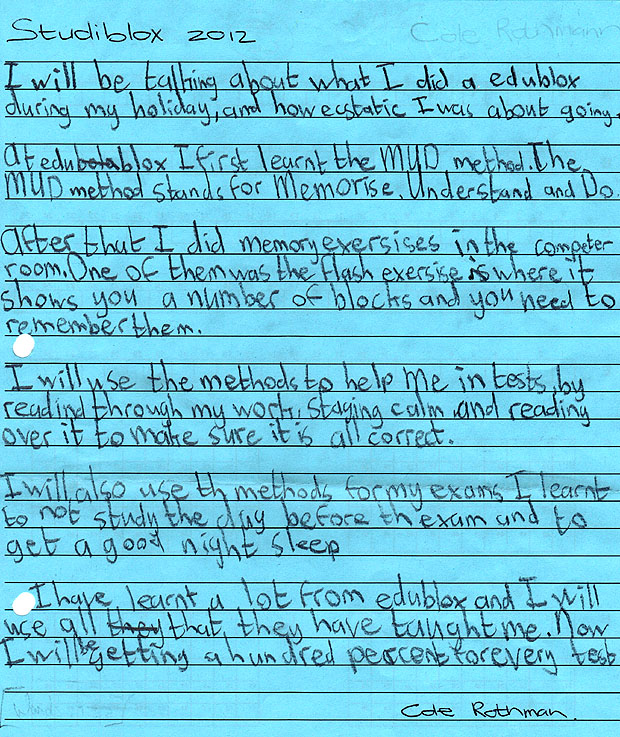 Studiblox 2012
Cole Rothmann
I will be talking about what I did a edublox
during my holiday, and how ecstatic I was about going.
At edubotablox I first learnt the MUD method. The
MUD method stands for Memorise, Understand and Do.
After that I did memory exersises in the competer
room. One of them was the flash exersise is where it
shows you a number of blocks and you need to
remember them.
I will use the methods to help me in tests, by
readind through my work, staying calm and reading
over it to make sure it is all correct.
I will also use th methods for my exams I learnt
to not study the day before th exam and to
get a good night sleep
I have learnt a lot from edublox and I will
use all they that they have taught me. Now
I will be getting a hundred percent for every test
Cole Rothman.